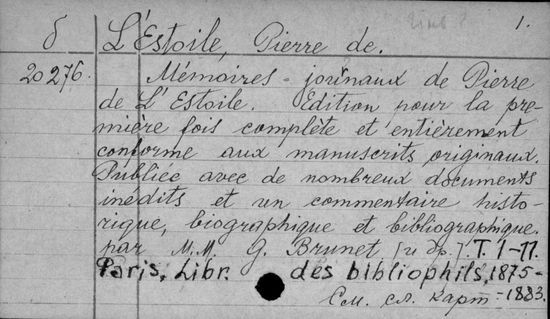 б L'Estoile, Pierre de. 1.
20276. Mémoires-journaux de Pierre
de L'Estoile. Edition pour la pre-
mière fois complète et entièrement
conforme aux manuscrits originaux.
Publiee avec de nombreux documents
inédits et un commentaire histo-
rique, biographique et bibliographique.
par M.M. G. Brunet [и др.]. T. 1-11.
Paris, Libr. des bibliophils, 1875-
-1883.
См. сл. карт